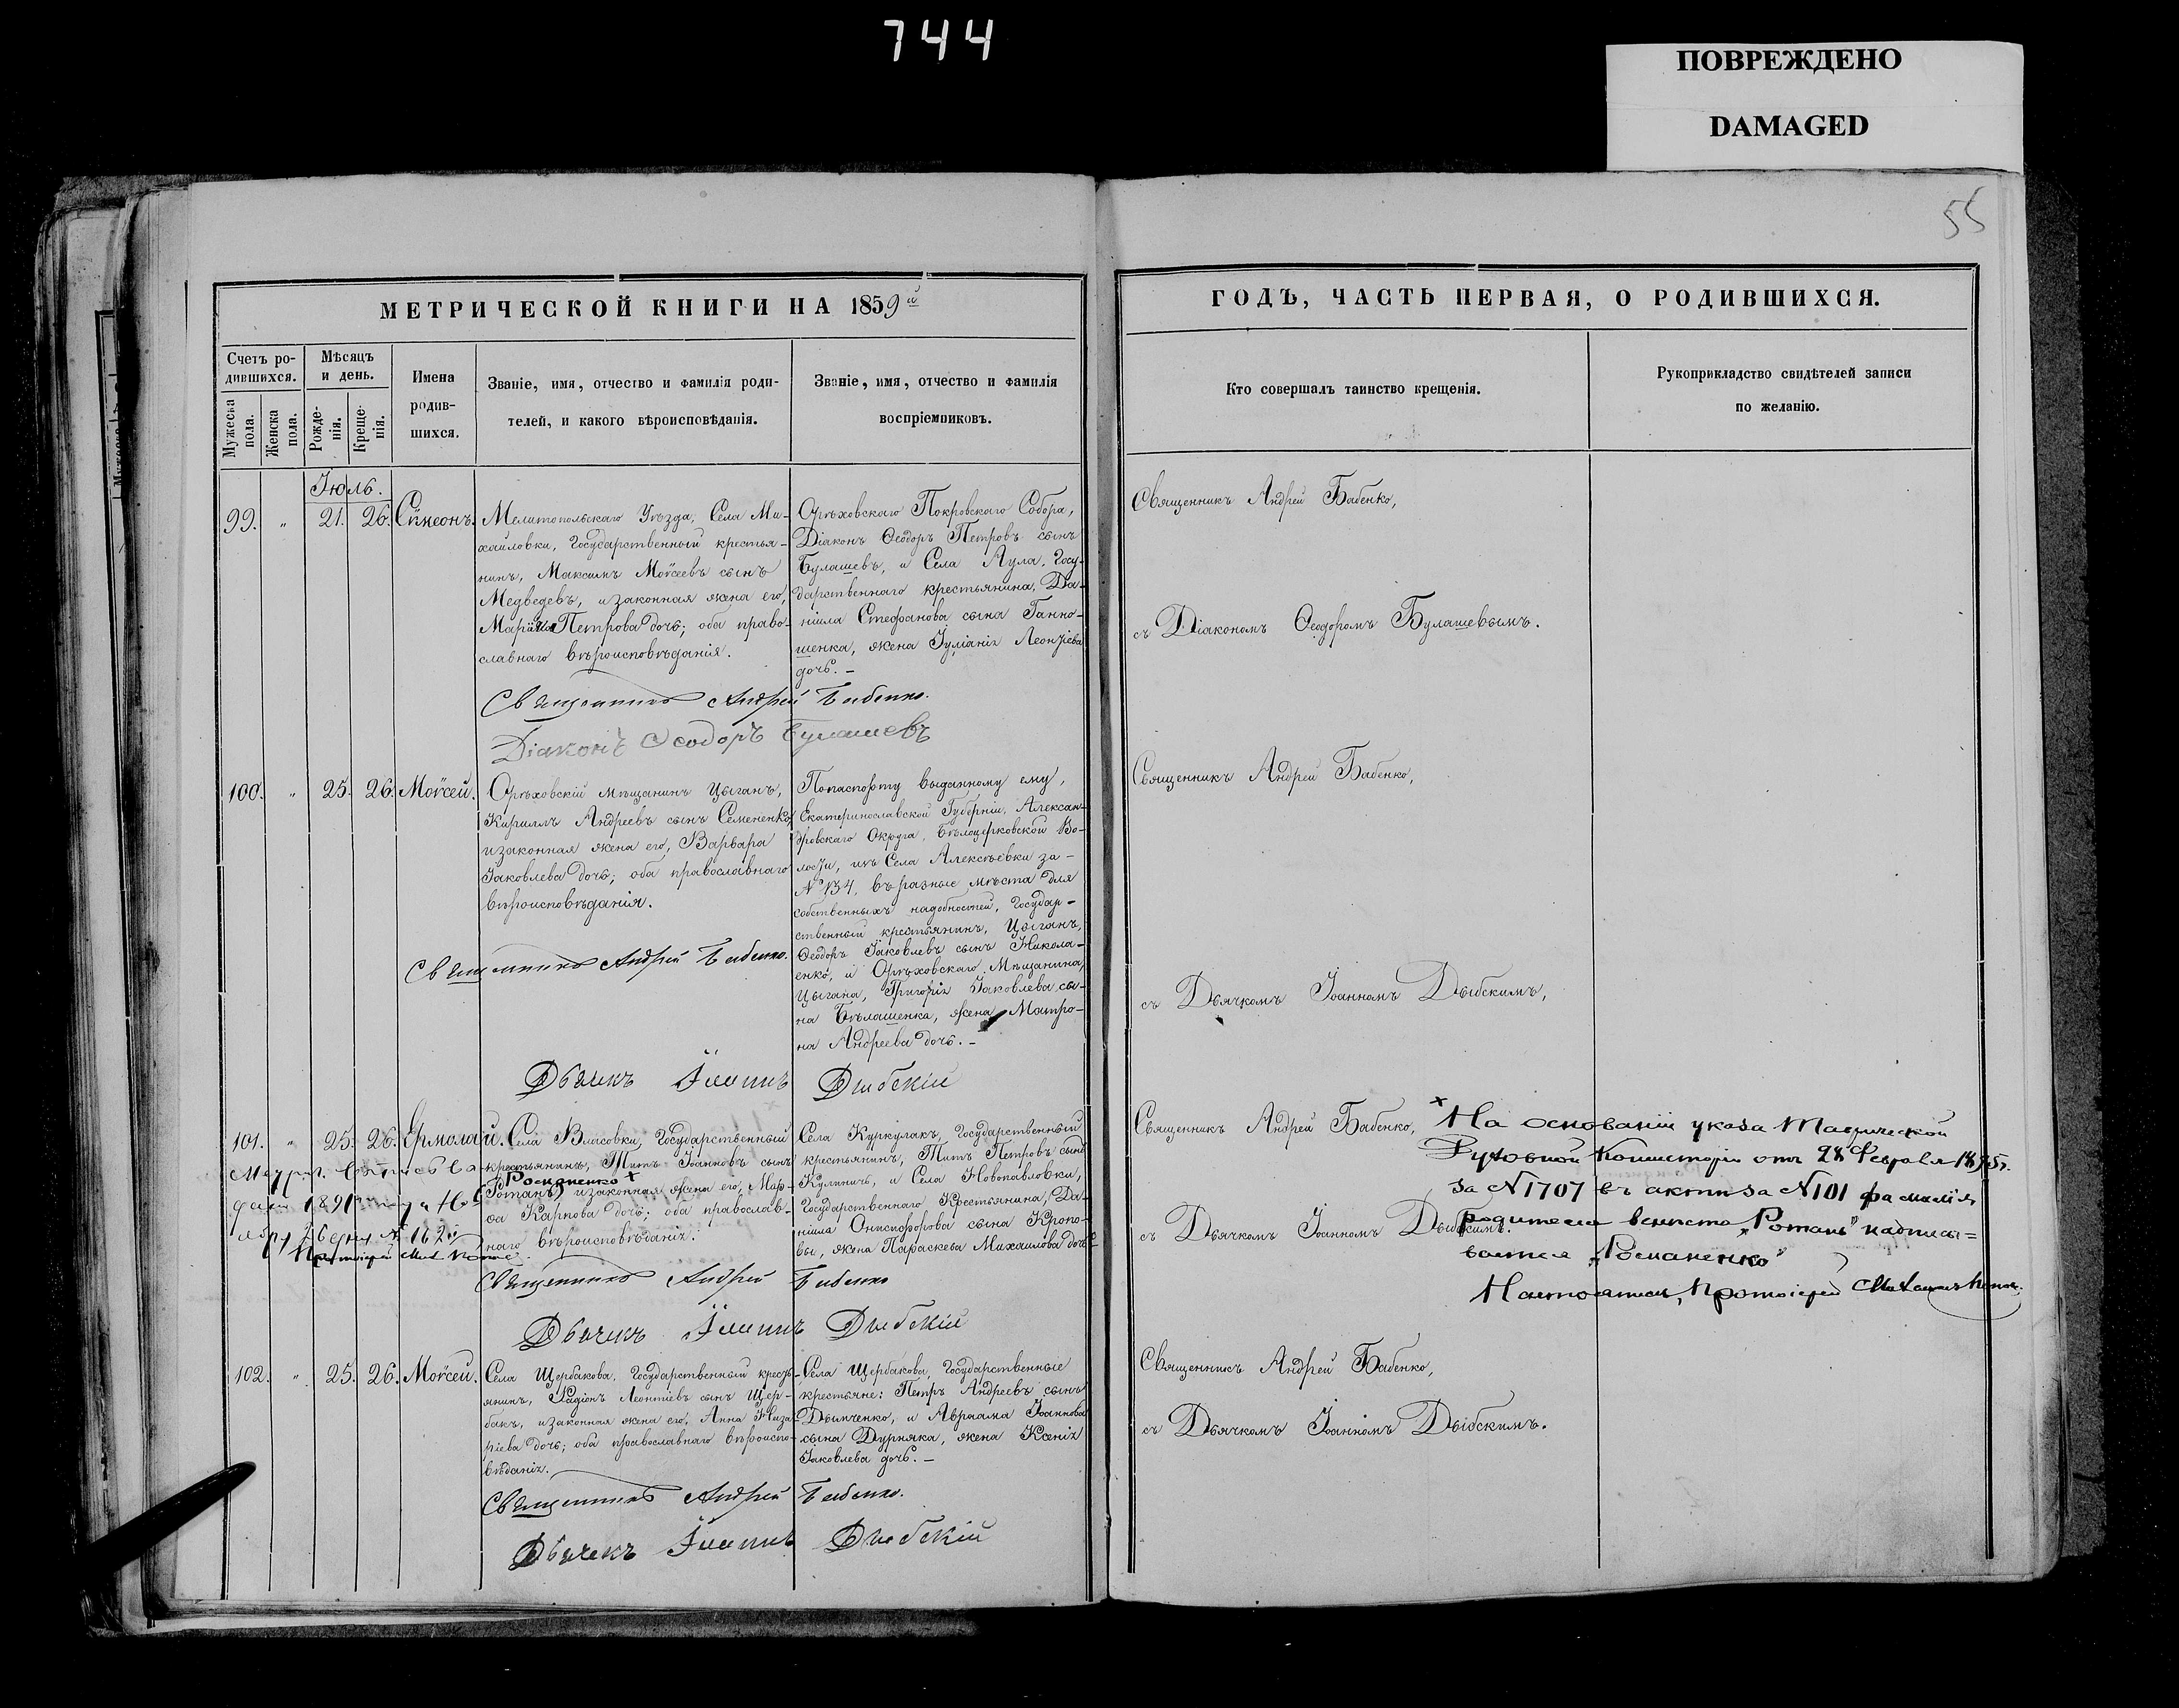 744
ПОВРЕЖДЕНО
DAMAGED
55
МЕТРИЧЕСКОЙ КНИГИ НА 1859й
Счетъ ро-
дившихся.
Мужеска
пола.
Женска
пола.
Мѣсяцъ
и день.
Рожде-
нія.
Креще-
нія.
Имена
родив-
шихся.
Званіе, имя, отчество и фамилія роди-
телей, и какого вѣроисповѣданія.
Званіе, имя, отчество и фамилія
воспріемниковъ.
ГОДЪ, ЧАСТЬ ПЕРВАЯ, О РОДИВШИХСЯ.
Кто совершалъ таинство крещенія.
Рукоприкладство свидѣтелей записи
по желанію.
Іюль.
99. " 21. 26. Симеонъ.
Мелитопольскаго Уѣзда, Села Ми-
хайловки, Государственный крестья-
нинъ, Максимъ Моѵсеевъ сынъ
Медведевъ, и законная жена его,
Марія Петрова дочь; оба право-
славнаго вѣроисповѣданія.
Орѣховскаго Покровскаго Собора,
Діаконъ Ѳеодоръ Петровъ сынъ
Булашевъ, и Села Аула, Госу-
дарственнаго крестьянина, Да-
ніила Стефанова сына Ганно-
шенка, жена Іуліанія Леонтіева
дочь. –
Священникъ Андрей Бабенко.
Діаконъ Ѳеодоръ Булашевъ
Священникъ Андрей Бабенко,
съ Діакономъ Ѳеодоромъ Булашевымъ.
100. " 25. 26. Моѵсей.
Орѣховскій мѣщанинъ Цыганъ,
Кириллъ Андреевъ сынъ Семененко,
и законная жена его, Варвара
Іаковлева дочь; оба православнаго
вѣроисповѣданія.
По паспорту выданному ему,
Екатеринославской Губерніи, Алексан-
дровскаго Округа, Бѣлоцерковской Во-
лости, изъ Села Алексѣевки за –
№ 134, въ разные мѣста для
собственныхъ надобностей, Государ-
ственный крестьянинъ, Цыганъ,
Ѳеодоръ Іаковлевъ сынъ Никола-
енко, и Орѣховскаго Мѣщанина,
Цыгана, Григорія Іаковлева сы-
на Бѣлашенка, жена Матро-
на Андреева дочь. –
Священникъ Андрей Бабенко.
Дьячекъ Іоаннъ Дыбскій
Священникъ Андрей Бабенко,
съ Дьячкомъ Іоанномъ Дыбскимъ,
101. " 25. 26. Ермолай.
Села Власовки, Государственный
крестьянинъ, Титъ Іоанновъ сынъ
Романенко +
(Ротань) и законная жена его, Мар-
ѳа Карпова дочь; оба православ-
наго вѣроисповѣданія.
Села Куркулакъ, Государственный
крестьянинъ, Титъ Петровъ сынъ
Кулиничъ, и Села Новопавловки,
Государственнаго Крестьянина, Да-
ніила Онисифорова сына Кропо-
вы, жена Параскева Михаилова дочь
Священникъ Андрей Бабенко
Дьячекъ Іоаннъ Дыбскій
Священникъ Андрей Бабенко,
съ Дьячкомъ Іоанномъ Дыбскимъ.
+ На основаніи указа Таврической
Духовной Консисторіи отъ 28 Февраля 1895г.
за №1707 въ актѣ за №101 фамилія
родителя вмѣсто „Ротань" надписы=
вается „Романенко"
Настоятель, Протоіерей
102. " 25. 26. Моѵсей.
Села Щербакова, Государственный крестья-
янинъ, Радіонъ Леонтіевъ сынъ Щер-
бакъ, и законная жена его, Анна Наза-
ріева дочь; оба православнаго вѣроиспо-
вѣданія.
Села Щербакова, Государственные
крестьяне: Петръ Андреевъ сынъ
Дымченко, и Авраама Іоаннова
сына Дурняка, жена Ксенія
Іаковлева дочь. –
Священникъ Андрей Бабенко.
Дьячекъ Іоаннъ Дыбскій
Священникъ Андрей Бабенко,
съ Дьячкомъ Іоанномъ Дыбскимъ.